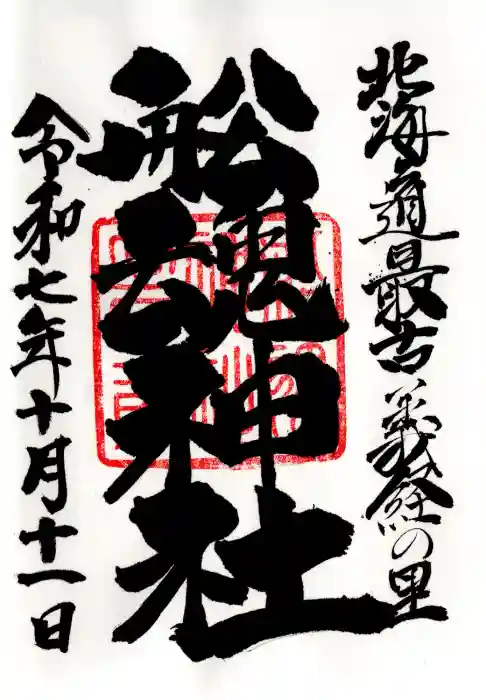 北海道最古義経の里
舩魂神社
令和七年十月十一日